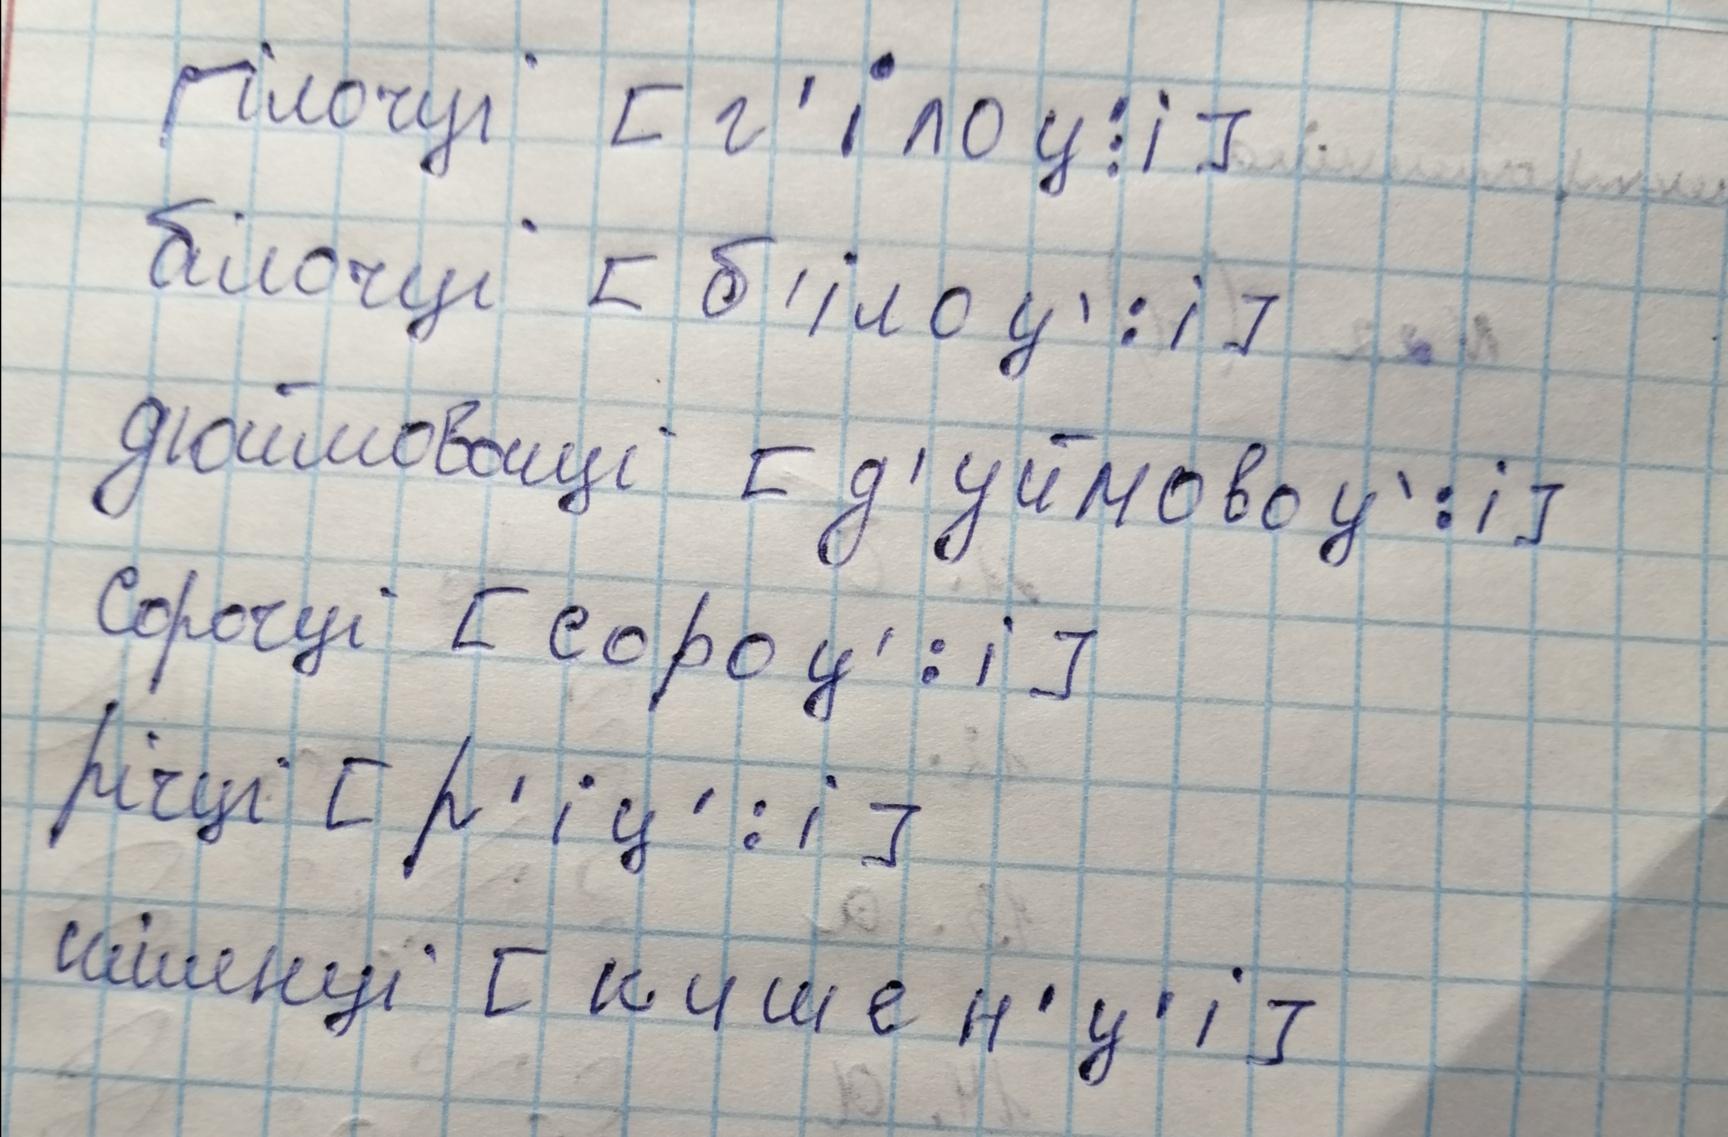 гілочці [г'ілоц:і]
білочці [б'ілоц':і]
дюймовочці [д'уймовоц':і]
сорочці [сороц':і]
річці [р'іц':і]
кишенці [кишен'ц'і]